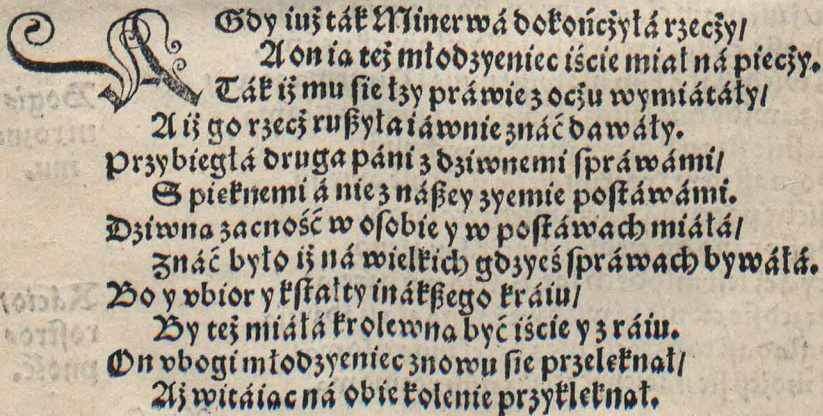 A Gdy iuż ták Minerwá dokończyłá rzeczy/
A on ia też młodzyeniec iście miał ná pieczy.
Ták iż mu sie łzy práwie z oczu wymiátáły/
A iż go rzecz rußyła iáwnie znáć dawáły.
Przybiegłá druga páni z dziwnemi spráwámi/
S pieknemi á nie z náßey zyemie postáwámi.
Dziwna zacność w osobie y w postáwach miáłá/
Znáć było iż ná wielkich gdzyeś spráwach bywáłá.
Bo y vbior y kstałty inákßego kráiu/
By też miáłá krolewna być iście y z ráiu.
On vbogi młodzyeniec znowu sie przeleknał/
Aż witáiac ná obie kolenie przykleknał.